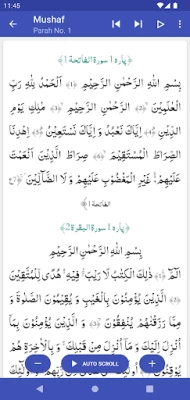 11:45
Mushaf
Parah No. 1
﴿پارہ 1 سورة الفاتحة 1﴾
بِسْمِ اللهِ الرَّحْمٰنِ الرَّحِيْمِ ﴿1﴾ اَلْحَمْدُ لِلّٰهِ رَبِّ
الْعٰلَمِيْنَ ﴿2﴾ الرَّحْمٰنِ الرَّحِيْمِ ﴿3﴾ مٰلِكِ يَوْمِ
الدِّيْنِ ﴿4﴾ اِيَّاكَ نَعْبُدُ وَ اِيَّاكَ نَسْتَعِيْنُ ﴿5﴾ اِهْدِنَا
الصِّرَاطَ الْمُسْتَقِيْمَ ﴿6﴾ صِرَاطَ الَّذِيْنَ اَنْعَمْتَ
عَلَيْهِمْ ۙ غَيْرِ الْمَغْضُوْبِ عَلَيْهِمْ وَ لَا الضَّآلِّيْنَ ﴿7﴾
الفاتحة 1
﴿پارہ 1 سورة البقرة 2﴾
بِسْمِ اللهِ الرَّحْمٰنِ الرَّحِيْمِ
الٓمّٓ ﴿1﴾ ذٰلِكَ الْكِتٰبُ لَا رَيْبَ ۛ فِيْهِ ۛ هُدًى لِّلْمُتَّقِيْنَ
﴿2﴾ الَّذِيْنَ يُؤْمِنُوْنَ بِالْغَيْبِ وَ يُقِيْمُوْنَ الصَّلٰوةَ وَ
مِمَّا رَزَقْنٰهُمْ يُنْفِقُوْنَ ﴿3﴾ وَ الَّذِيْنَ يُؤْمِنُوْنَ بِمَآ
اُنْزِلَ اِلَيْكَ وَ مَآ اُنْزِلَ مِنْ قَبْلِكَ ۚ وَ بِالْاٰخِرَةِ هُمْ
AUTO SCROLL